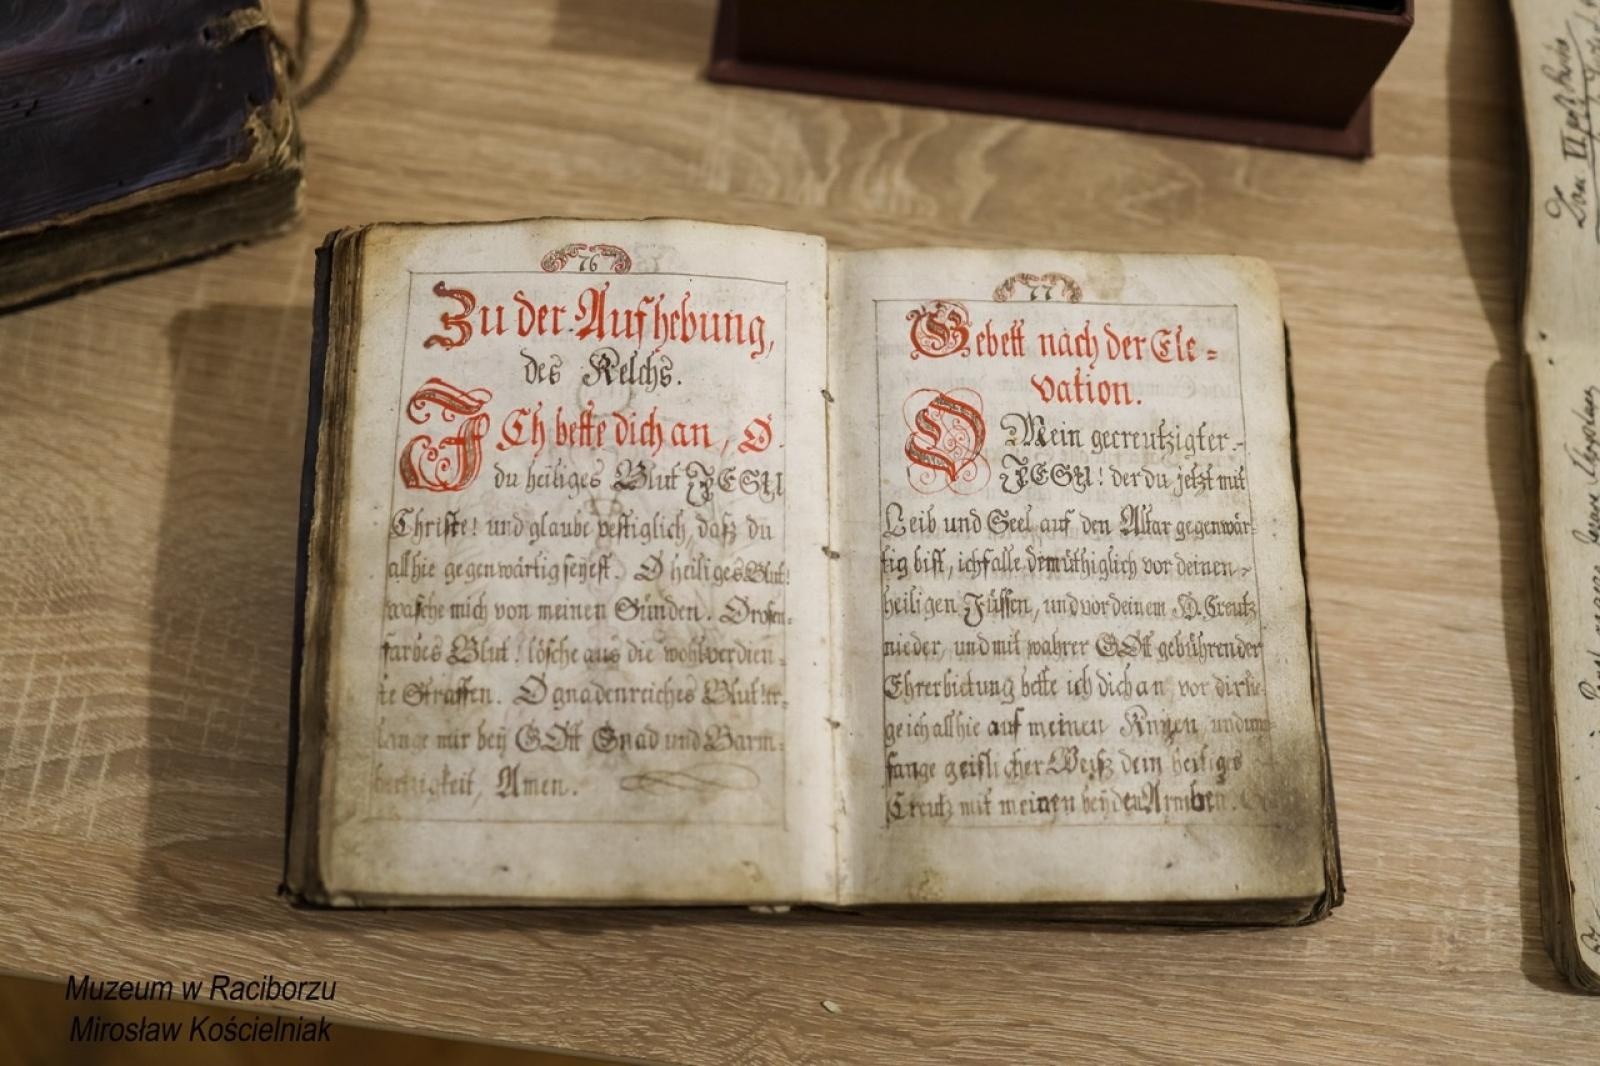 76
Zu der Aufhebung,
des Kelchs.
ICh bette dich an, O
du heiliges Blut JESU
Christe! und glaube vestiglich, daß du
allhie gegenwärtig seyest. O heiliges Blut!
wasche mich von meinen Sünden. O rosen-
farbes Blut! lösche aus die wohlverdien-
te Straffen. O gnadenreiches Blut! er-
lange mir bey GOtt Gnad und Barm-
hertzigkeit, Amen.
77
Gebett nach der Ele-
vation.
O Mein gecreutzigter
JESU! der du jetzt mit
Leib und Seel auf den Altar gegenwär-
tig bist, ich falle demüthiglich vor deinen
heiligen Füssen, und vor deinem H. Creutz
nieder, und mit wahrer GOtt gebührender
Ehrerbietung bette ich dich an, vor dir lie-
ge ich allhie auf meinen Knyen, und um-
fange geistlicher Weiß dein heiliges
Creutz mit meinen beyden Armben.
Muzeum w Raciborzu
Mirosław Kościelniak